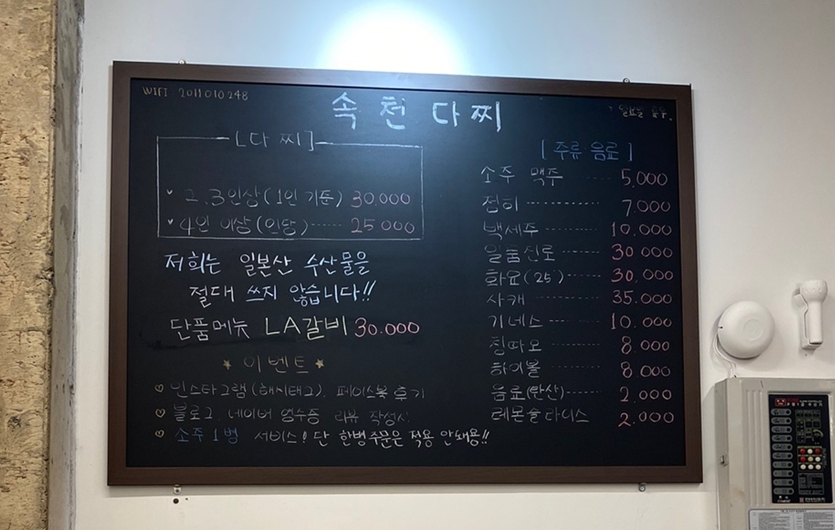 WIFI 2011010248
속천다찌
일요일 휴무.
[다찌]
2.3인상(1인 기준) 30.000
4인 이상(인당)······ 25.000
저희는 일본산 수산물을
절대 쓰지 않습니다!!
단품메뉴 LA갈비 30.000
★ 이벤트 ★
♡ 인스타그램(해시태그), 페이스북 후기
♡ 블로그, 네이버 영수증 리뷰 작성시
♡ 소주 1병 서비스! 단 한병주문은 적용 안돼용!!
[주류 음료]
소주 맥주 5,000
청하 7000
백세주 10.000
일품진로 30 000
화요(25) 30.000
사케 35.000
기네스 10.000
칭따오 8 000
하이볼 8 000
음료(탄산) 2.000
레몬슬라이스 2.000